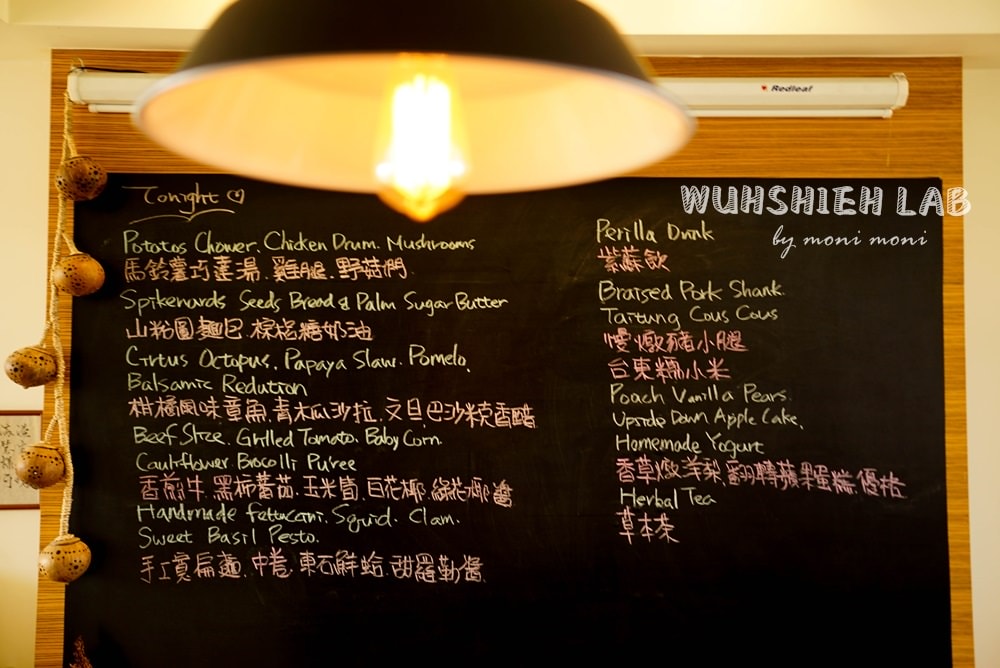 Redleaf
WUHSHIEH LAB
by moni moni
Tonight
Pototos Chower. Chicken Drum. Mushrooms
馬鈴薯巧達湯.雞腿.野菇們
Spikenards Seeds Bread & Palm Sugar Butter
山粉圓麵包.棕梠糖奶油
Cirtus Octopus. Papaya Slaw. Pomelo.
Balsamic Redution
柑橘風味章魚.青木瓜沙拉.文旦.巴沙米克香醋
Beef Slice. Grilled Tomato. Baby Corn.
Cauliflower Brocolli Puree
香煎牛.黑柿蕃茄.玉米筍.白花椰.綠花椰醬
Handmade Fettucani. Squid. Clam.
Sweet Basil Pesto.
手工寬扁麵.中卷.東石鮮蛤.甜羅勒醬
Perilla Drink
紫蘇飲
Braised Pork Shank.
Taitung Cous Cous
慢燉豬小腿
台東糯小米
Poach Vanilla Pears.
Upside Down Apple Cake.
Homemade Yogurt
香草燉洋梨.翻轉蘋果蛋糕.優格
Herbal Tea
草本茶